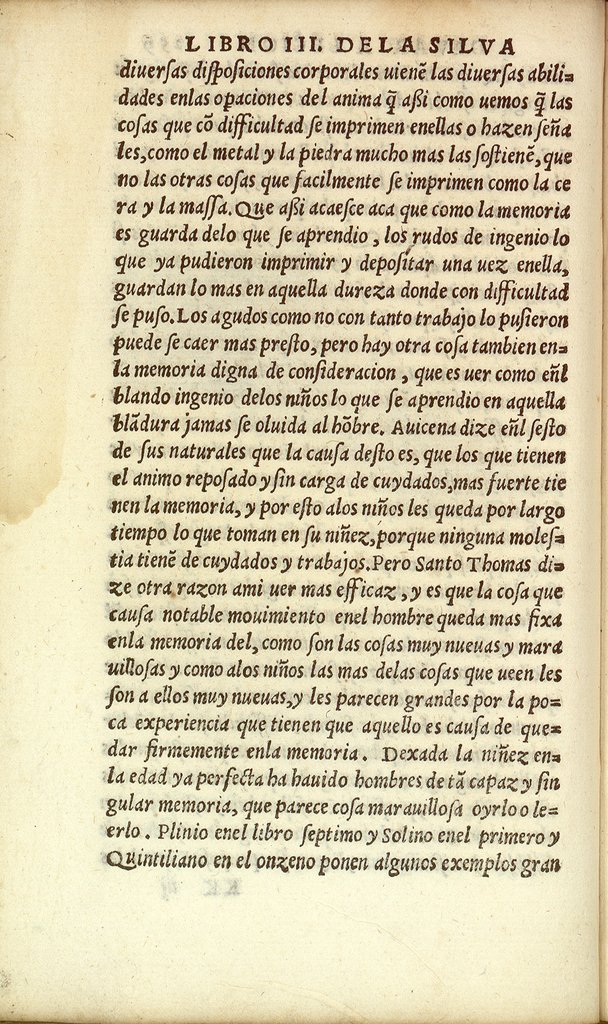 LIBRO III. DELA SILVA
diuerſas diſpoſiciones corporales uienẽ las diuerſas abili=
dades enlas opaciones del anima q̃ aßi como uemos q̃ las
coſas que cõ difficultad ſe imprimen enellas o hazen ſeña
les,como el metal y la piedra mucho mas las ſoſtienẽ,que
no las otras coſas que facilmente ſe imprimen como la ce
ra y la maſſa. Que aßi acaeſce aca que como la memoria
es guarda delo que ſe aprendio, los rudos de ingenio lo
que ya pudieron imprimir y depoſitar una uez enella,
guardan lo mas en aquella dureza donde con difficultad
ſe puſo. Los agudos como no con tanto trabajo lo puſieron
puede ſe caer mas preſto, pero hay otra coſa tambien en=
la memoria digna de conſideracion, que es uer como eñl
blando ingenio delos niños lo que ſe aprendio en aquella
blãdura jamas ſe oluida al hõbre. Auicena dize eñl ſeſto
de ſus naturales que la cauſa deſto es, que los que tienen
el animo repoſado y ſin carga de cuydados,mas fuerte tie
nen la memoria, y por eſto alos niños les queda por largo
tiempo lo que toman en ſu niñez, porque ninguna moleſ=
tia tienẽ de cuydados y trabajos. Pero Santo Thomas di=
ze otra razon ami uer mas efficaz, y es que la coſa que
cauſa notable mouimiento enel hombre queda mas fixa
enla memoria del, como ſon las coſas muy nueuas y mara
uilloſas y como alos niños las mas delas coſas que ueen les
ſon a ellos muy nueuas, y les parecen grandes por la po=
ca experiencia que tienen que aquello es cauſa de que=
dar firmemente enla memoria. Dexada la niñez en=
la edad ya perfecta ha hauido hombres de tã capaz y ſin
gular memoria, que parece coſa marauilloſa oyrlo o le=
erlo. Plinio enel libro ſeptimo y Solino enel primero y
Quintiliano en el onzeno ponen algunos exemplos gran